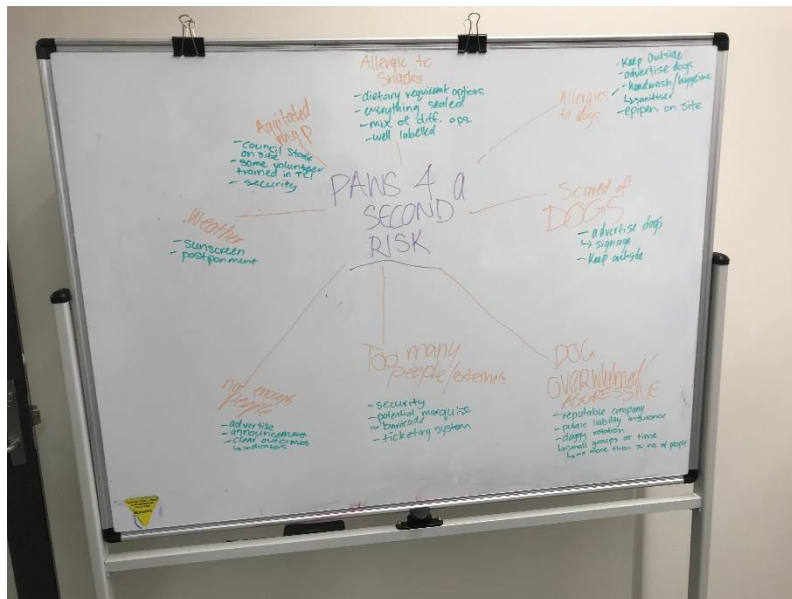 PAWS 4 a
SECOND
RISK
Allergic to
Snacks
- dietary requirement options
- everything sealed
- mix of diff. ops.
- well labelled
Allergies
to dogs
- Keep outside
- advertise dogs
- handwash/hygeine
↳ sanitiser
- epipen on site
Scared of
DOGS
- advertise dogs
↳ signage
- Keep outside
DOG
OVERWHELMED/
AGGRESSIVE
- reputable company
- public liability insurance
- doggy rotation
↳ small groups at time
↳ no more than x no. of people
Too many
people/externals
- security
- potential marquise
~ barricade
- ticketing system
not enough
people
- advertise
- announcement
- clear outcomes
↳ indicators
Weather
- sunscreen
- postponment
Aggitated
- council staff
on site
- some volunteer
trained in TCI
- security